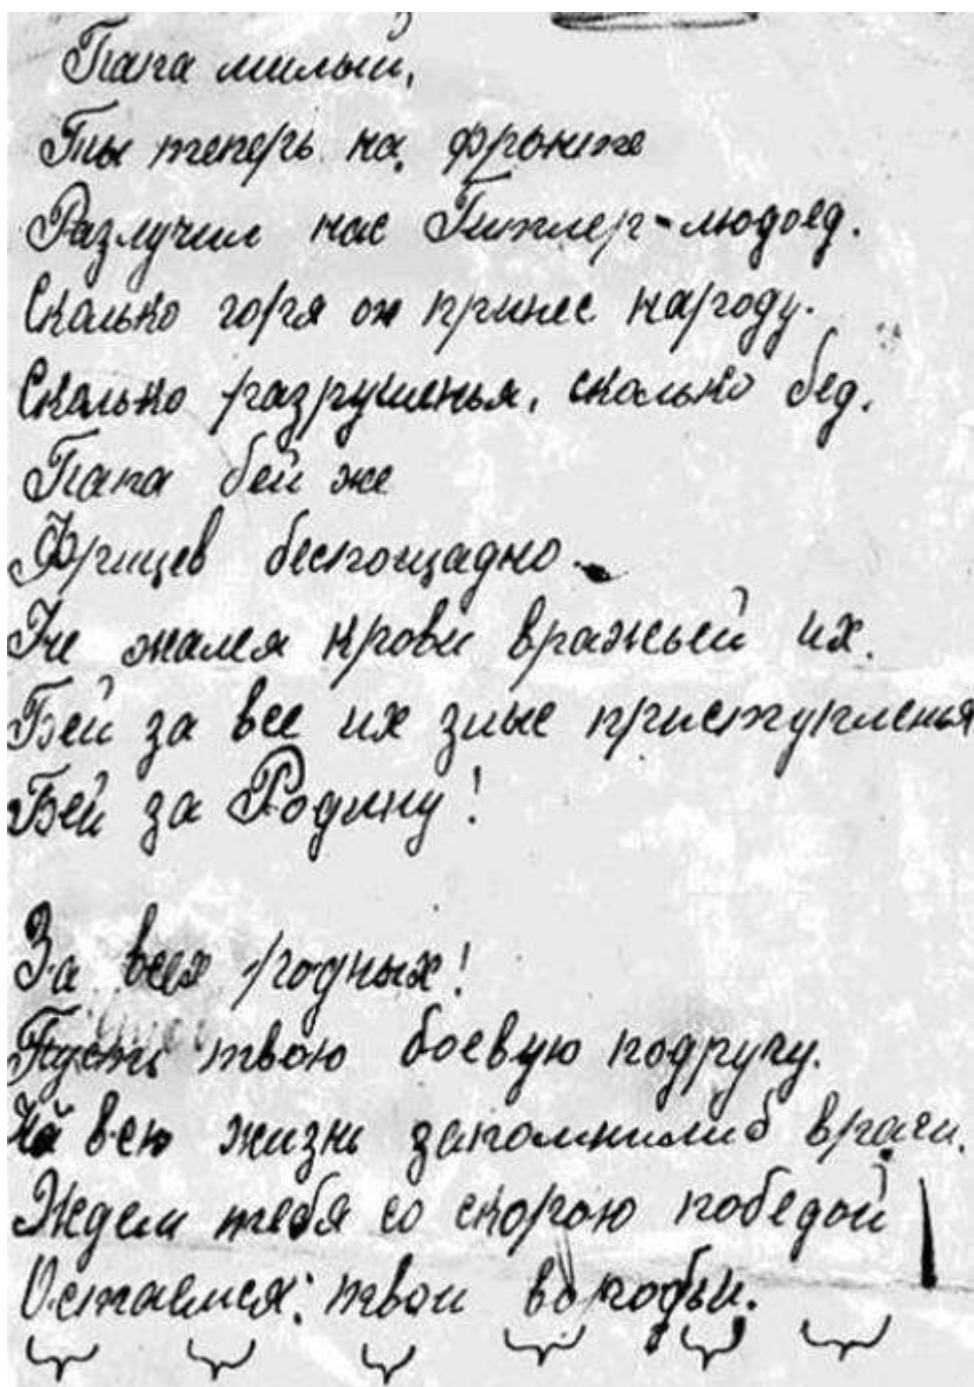 Папа милый,
Ты теперь на фронте
Разлучил нас Гитлер-людоед.
Сколько горя он принес народу.
Сколько разрушенья, сколько бед.
Папа бей же
Фрицев беспощадно
Не жалея крови вражьей их.
Бей за все их злые приступленья
Бей за Родину!
За всех родных!
Пусть твою боевую подругу.
На всю жизнь запомнилиб враги.
Ждем тебя со скорою победой!
Остаемся: твои воробьи.